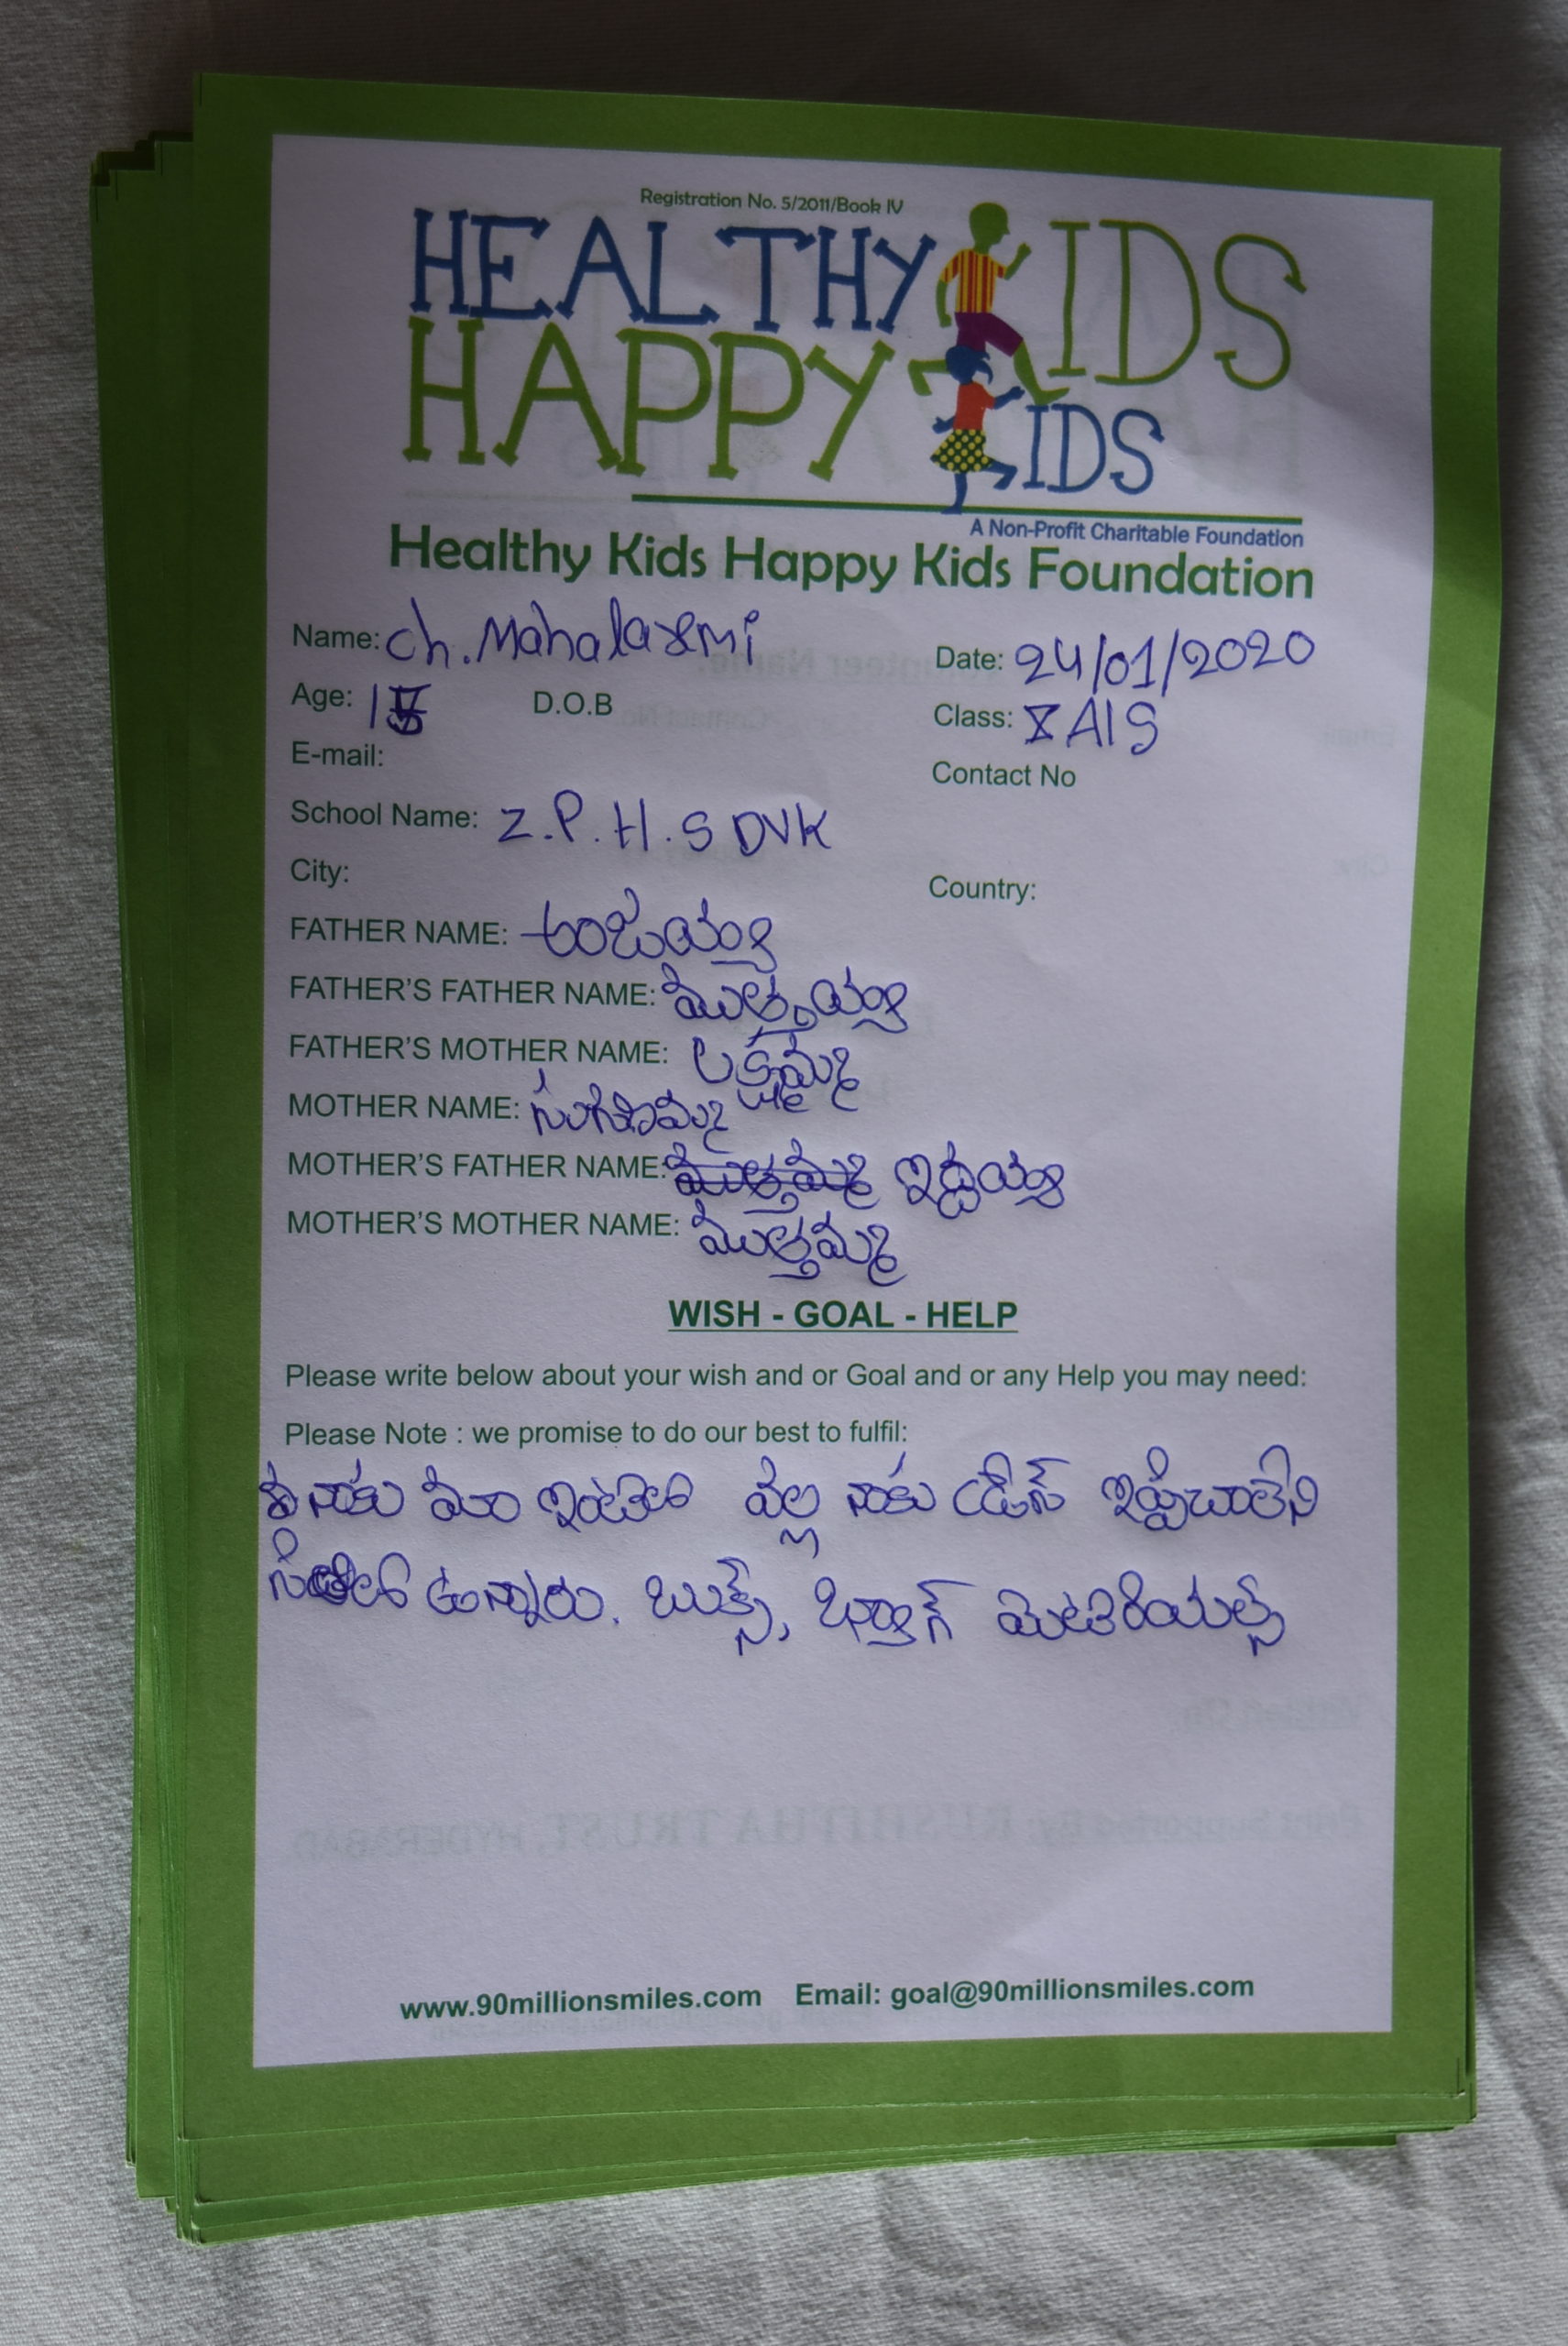 Registration No. 5/2011/Book IV
HEALTHY KIDS
HAPPY KIDS
A Non-Profit Charitable Foundation
Healthy Kids Happy Kids Foundation
Name: Ch. Mahalaxmi
Date: 24/01/2020
Age: 15
D.O.B
Class: X A1S
E-mail:
Contact No
School Name: Z.P.H.S DVK
City:
Country:
FATHER NAME: అంజయ్య
FATHER'S FATHER NAME: ముత్తయ్య
FATHER'S MOTHER NAME: లక్ష్మమ్మ
MOTHER NAME:
MOTHER'S FATHER NAME: ముత్తమ్మ ఇద్దయ్య
MOTHER'S MOTHER NAME: ముత్తమ్మ
WISH - GOAL - HELP
Please write below about your wish and or Goal and or any Help you may need:
Please Note : we promise to do our best to fulfil:
నాకు మా ఇంటిలో వల్ల నాకు డ్రేస్ ఇప్పిచాలేని
ఉన్నారు. బుక్స్, బ్యాగ్ మెటిరియల్స్
www.90millionsmiles.com Email: goal@90millionsmiles.com